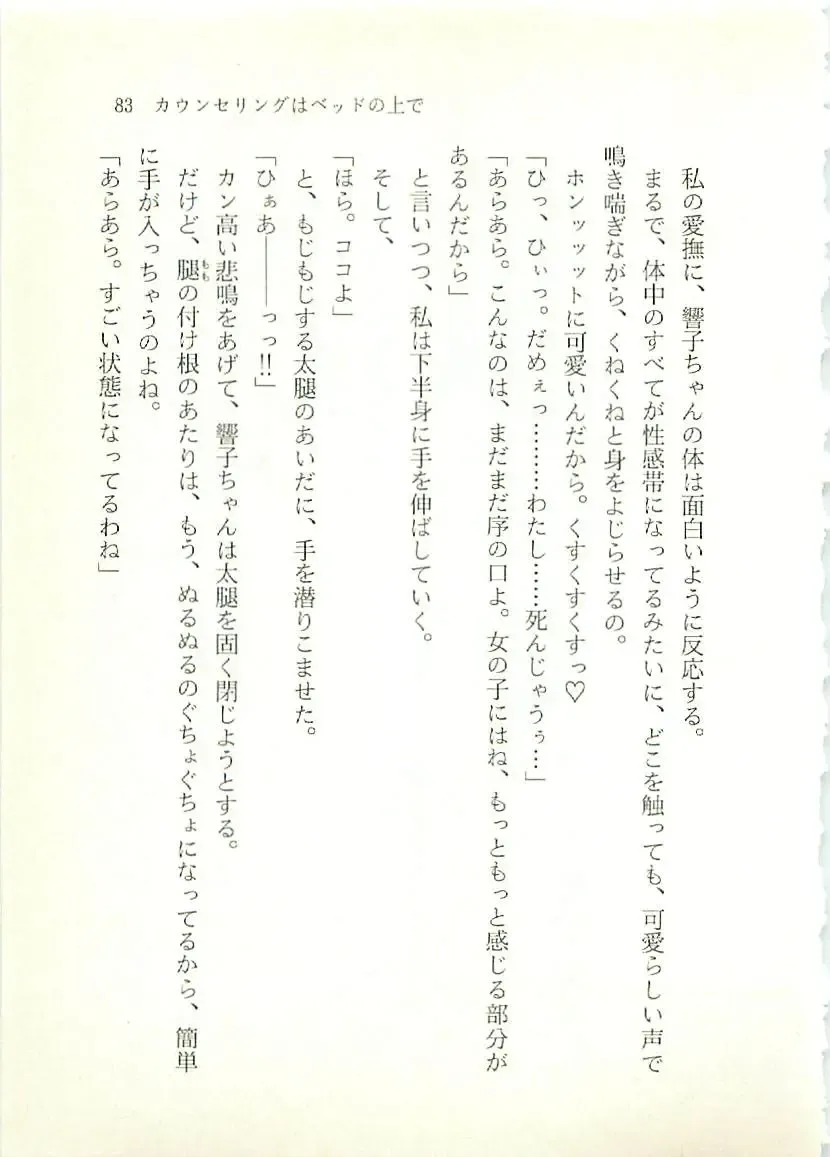 83　カウンセリングはベッドの上で
私の愛撫に、響子ちゃんの体は面白いように反応する。
まるで、体中のすべてが性感帯になってるみたいに、どこを触っても、可愛らしい声で
鳴き喘ぎながら、くねくねと身をよじらせるの。
ホンッッットに可愛いんだから。くすくすくすっ♡
「ひっ、ひぃっ。だめぇっ………わたし……死んじゃうぅ…」
「あらあら。こんなのは、まだまだ序の口よ。女の子にはね、もっともっと感じる部分が
あるんだから」
と言いつつ、私は下半身に手を伸ばしていく。
そして、
「ほら。ココよ」
と、もじもじする太腿のあいだに、手を潜りこませた。
「ひぁあ――っっ!!」
カン高い悲鳴をあげて、響子ちゃんは太腿を固く閉じようとする。
だけど、腿ももの付け根のあたりは、もう、ぬるぬるのぐちょぐちょになってるから、簡単
に手が入っちゃうのよね。
「あらあら。すごい状態になってるわね」